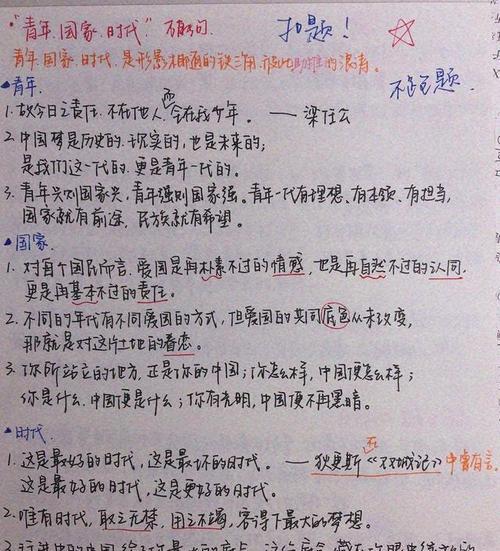 "青年,国家,时代"不离句. 扣题!
青年、国家、时代,是形影不离的铁三角,彼此助推的浪涛。 不跑题.
青年.
1. 故今日之责任,不在他人,而全在我少年。——梁任公
2. 中国梦是历史的、现实的,也是未来的;
是我们这一代的,更是青年一代的。
3. 青年兴则国家兴,青年强则国家强。青年一代有理想、有本领、有担当,
国家就有前途,民族就有希望。
国家.
1. 对每个国民而言,爱国是再朴素不过的情感,也是再自然不过的认同,
更是再基本不过的责任。
2. 不同的年代有不同爱国的方式,但爱国的共同底色从未改变,
那就是对这片土地的眷恋。
3. 你所站立的地方,正是你的中国;你怎么样,中国便怎么样;
你是什么,中国便是什么;你有光明,中国便不再黑暗。
时代.
1. 这是最好的时代,这是最坏的时代。——狄更斯《双城记》中曾有言.
这是最好的时代,这是更好的时代。
2. 唯有时代,取之无禁,用之不竭,容得下最大的梦想。
3. 行进中的中国